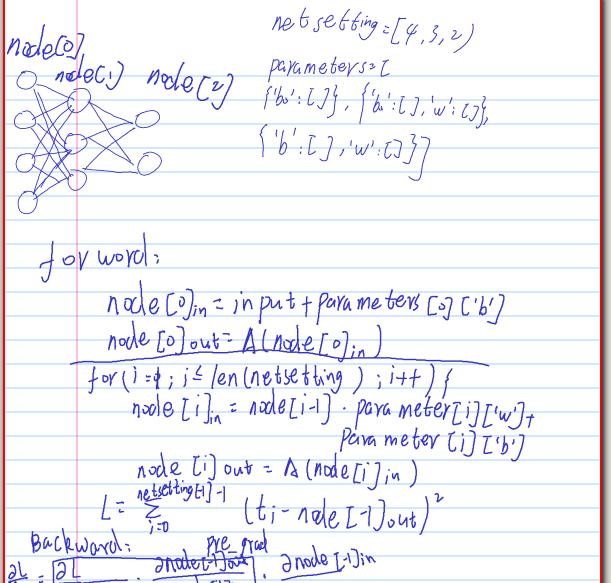 netsetting=[4,3,2)
node[0]
node[1] node[2]
parameters=[
{'b':[]}, {'b':[],'w':[]},
{'b':[],'w':[]}]
forword:
node[0]in = input + parameters[0]['b']
node[0]out = A(node[0]in)
for(i=1; i≤len(netsetting); i++){
node[i]in = node[i-1] · parameter[i]['w']+
parameter[i]['b']
node[i]out = A(node[i]in)
netsetting[-1]-1
L= Σ (ti - node[-1]out)²
i=0
Backward: pre_grad
∂L = ∂L · ∂node[-1]out · ∂node[-1]in